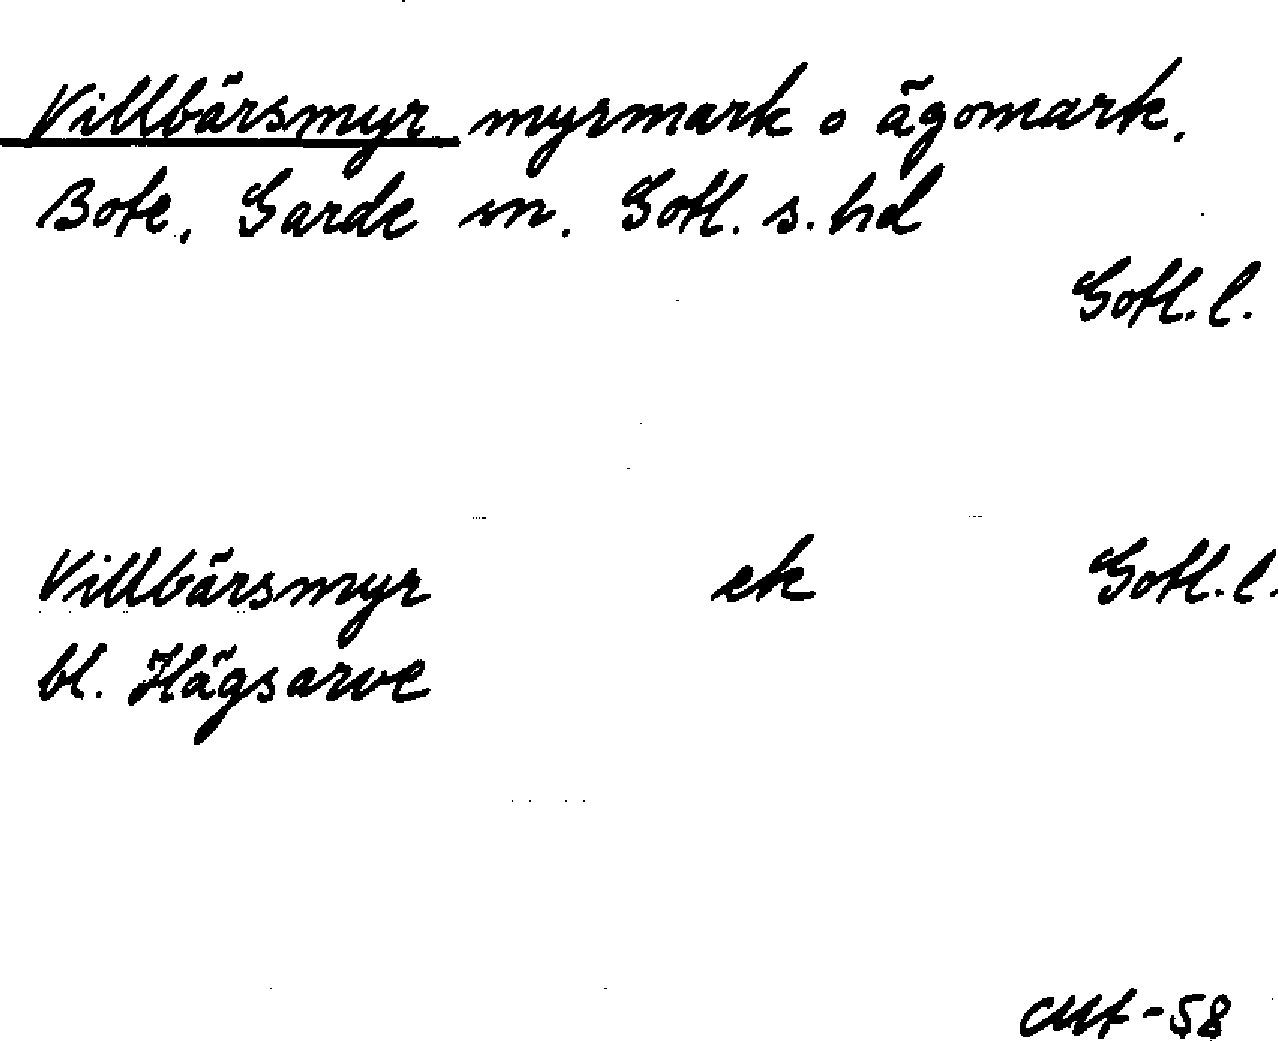 Villbärsmyr myrmark o ägomark.
Bote, Garde sn. Gotl. s. hd
Gotl. l.
Villbärsmyr ek Gotl. l.
bl. Hägsarve
-58